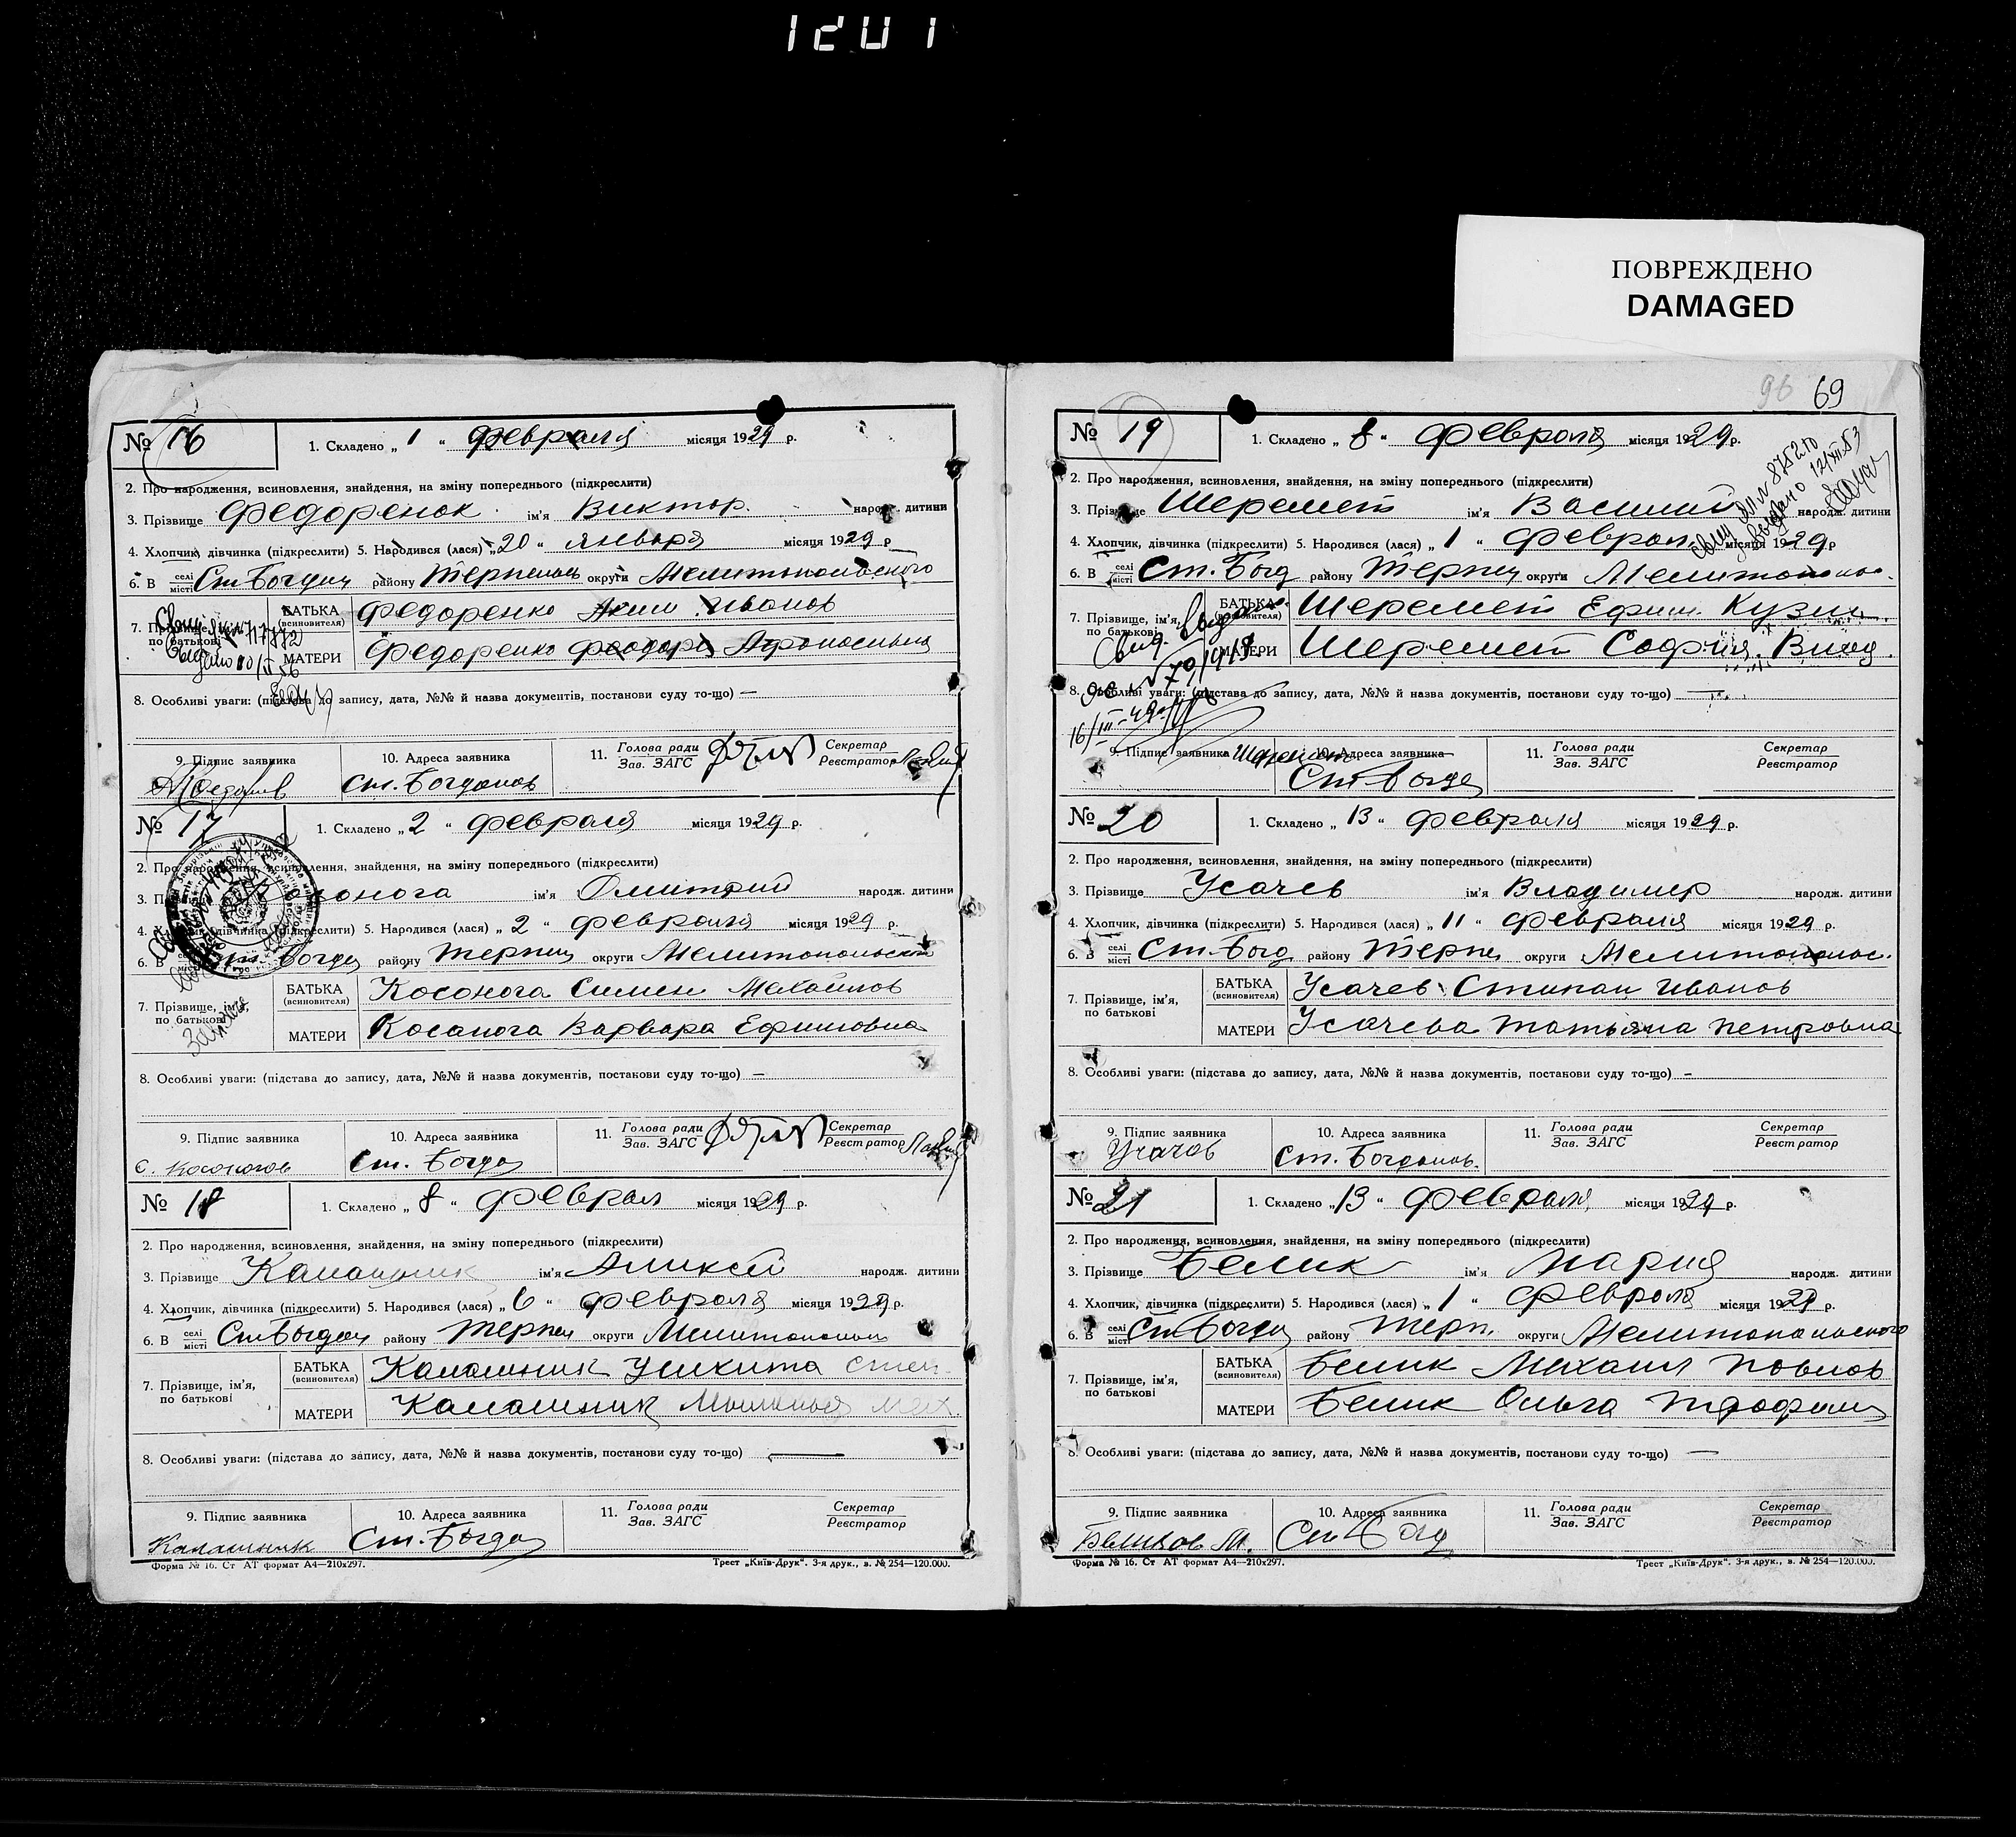 1201
ПОВРЕЖДЕНО
DAMAGED
№ 16
1. Складено „ 1 “ февраля місяця 1929 р.
2. Про народження, всиновлення, знайдення, на зміну попереднього (підкреслити)
3. Прізвище Федоренок ім'я Виктор народж. дитини
4. Хлопчик, дівчинка (підкреслити) 5. Народився (лася) „ 20 “ января місяця 1929 р
6. В селі місті Ст Богдан району округи Мелитопольского
7. Прізвище, ім'я, по батькові
БАТЬКА (всиновителя) Федоренко Аким Иванов
МАТЕРИ Федоренко Феодора Афонасьевна
8. Особливі уваги: (підстава до запису, дата, №№ й назва документів, постанови суду то-що) —
9. Підпис заявника
10. Адреса заявника Ст. Богданов
11. Голова ради Зав. ЗАГС
Секретар Реєстратор
№ 17
1. Складено „ 2 “ февраля місяця 1929 р.
2. Про народження, всиновлення, знайдення, на зміну попереднього (підкреслити)
3. ім'я Дмитрий народж. дитини
4. Хлопчик, дівчинка (підкреслити) 5. Народився (лася) „ 2 “ февраля місяця 1929 р.
6. В Ст. Богда району Терпен округи Мелитопольской
7. Прізвище, ім'я, по батькові
БАТЬКА (всиновителя) Косонога Симен Михайлов
МАТЕРИ Косанога Варвара Ефимовна
8. Особливі уваги: (підстава до запису, дата, №№ й назва документів, постанови суду то-що) —
9. Підпис заявника С. Косоногов
10. Адреса заявника Ст. Богда
11. Голова ради Зав. ЗАГС
Секретар Реєстратор
№ 18
1. Складено „ 8 “ феврал місяця 1929 р.
2. Про народження, всиновлення, знайдення, на зміну попереднього (підкреслити)
3. Прізвище Калашник ім'я Аликсей народж. дитини
4. Хлопчик, дівчинка (підкреслити) 5. Народився (лася) „ 6 “ февраля місяця 1929 р.
6. В селі місті Ст Богдан району Терпен округи
7. Прізвище, ім'я, по батькові
БАТЬКА (всиновителя) Калашник
МАТЕРИ Калашник
8. Особливі уваги: (підстава до запису, дата, №№ й назва документів, постанови суду то-що) —
9. Підпис заявника Калашник
10. Адреса заявника Ст. Богда
11. Голова ради Зав. ЗАГС
Секретар Реєстратор
Форма № 16. Ст АТ формат А4—210х297.
Трест „Київ-Друк“. 3-я друк., з. № 254—120.000.
96 69
№ 19
1. Складено „ 8 “ февраля місяця 1929 р.
2. Про народження, всиновлення, знайдення, на зміну попереднього (підкреслити)
3. Прізвище Шеремет ім'я Василий народж. дитини
4. Хлопчик, дівчинка (підкреслити) 5. Народився (лася) „ 1 “ феврал. місяця 1929 р
6. В селі місті Ст. Богд району Терпен округи
7. Прізвище, ім'я, по батькові
БАТЬКА (всиновителя) Шеремет Ефим. Кузим.
МАТЕРИ Шеремет София
8. Особливі уваги: (підстава до запису, дата, №№ й назва документів, постанови суду то-що) —
9. Підпис заявника Шеремет
10. Адреса заявника Ст Богда
11. Голова ради Зав. ЗАГС
Секретар Реєстратор
№ 20
1. Складено „ 13 “ февраля місяця 1929 р.
2. Про народження, всиновлення, знайдення, на зміну попереднього (підкреслити)
3. Прізвище Усачев ім'я Владимер народж. дитини
4. Хлопчик, дівчинка (підкреслити) 5. Народився (лася) „ 11 “ февраля місяця 1929 р.
6. В селі місті Ст. Богд району Терпе округи
7. Прізвище, ім'я, по батькові
БАТЬКА (всиновителя) Усачев Стипан Иванов
МАТЕРИ Усачева Татьяна Петровна
8. Особливі уваги: (підстава до запису, дата, №№ й назва документів, постанови суду то-що) —
9. Підпис заявника Усачов
10. Адреса заявника Ст. Богданов.
11. Голова ради Зав. ЗАГС
Секретар Реєстратор
№ 21
1. Складено „ 13 “ февраля місяця 1929 р.
2. Про народження, всиновлення, знайдення, на зміну попереднього (підкреслити)
3. Прізвище Белик ім'я Мария народж. дитини
4. Хлопчик, дівчинка (підкреслити) 5. Народився (лася) „ 1 “ февраля місяця 1929 р.
6. В селі місті Ст Богда району Терп. округи Мелитопольского
7. Прізвище, ім'я, по батькові
БАТЬКА (всиновителя) Белик Михаил Павлов
МАТЕРИ Белик Ольга
8. Особливі уваги: (підстава до запису, дата, №№ й назва документів, постанови суду то-що) —
9. Підпис заявника Беликов М.
10. Адреса заявника Ст Богд
11. Голова ради Зав. ЗАГС
Секретар Реєстратор
Форма № 16. Ст АТ формат А4—210х297.
Трест „Київ-Друк“. 3-я друк., з. № 254—120.000.